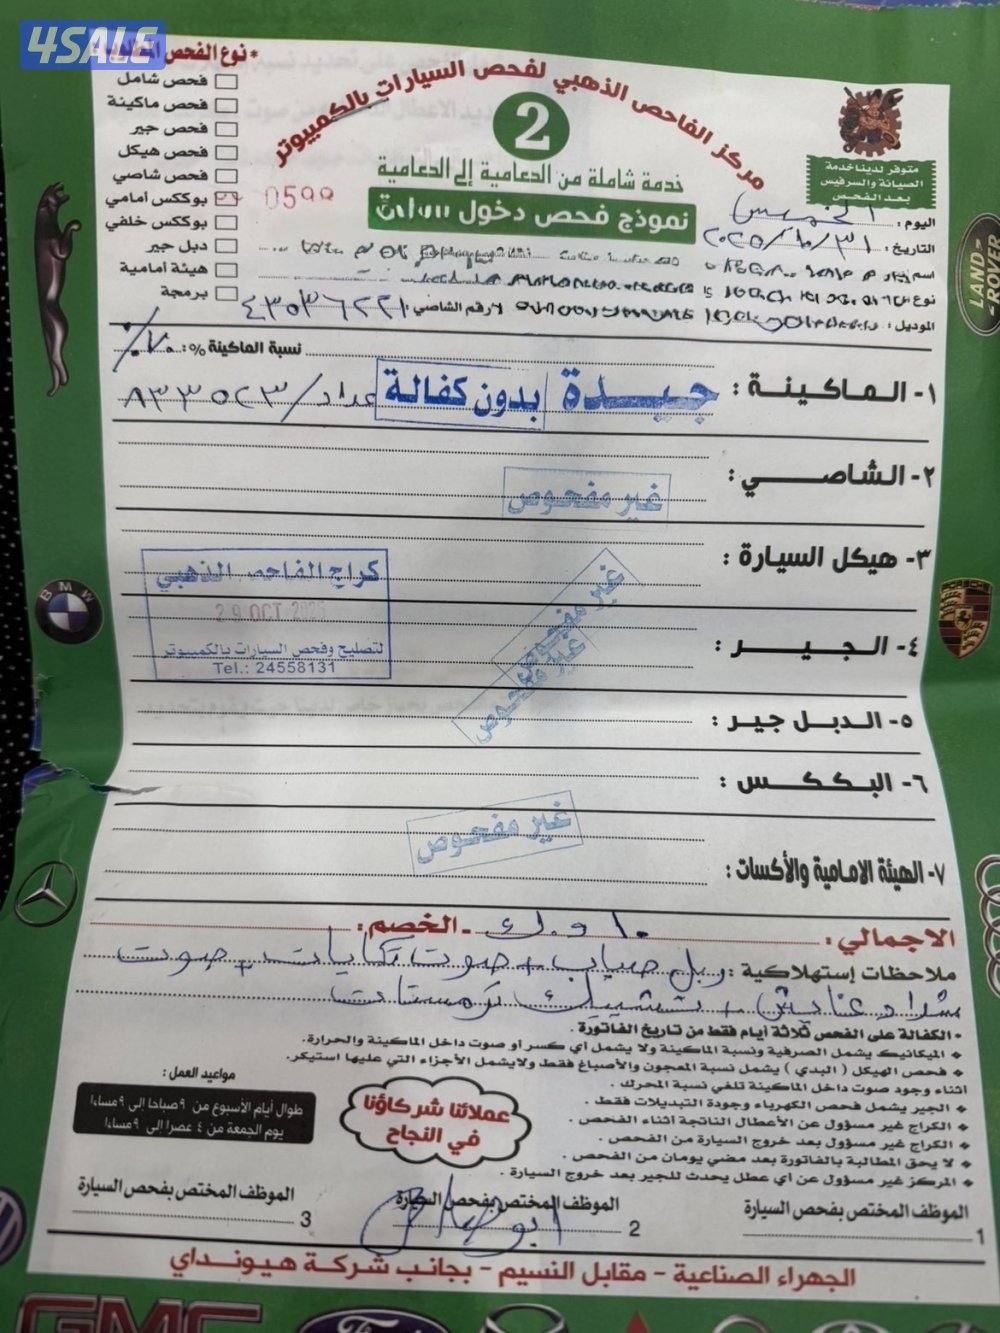 4SALE
مركز الفاحص الذهبي لفحص السيارات بالكمبيوتر
2
خدمة شاملة من الدعامية إلى الدعامية
نموذج فحص دخول
متوفر لدينا خدمة
الصيانة والسرفيس
بعد الفحص
* نوع الفحص
فحص شامل
فحص ماكينة
فحص جير
فحص هيكل
فحص شاصي
بوككس أمامي
بوككس خلفي
دبل جير
هيئة أمامية
برمجة
0599
اليوم : الخميس
التاريخ : ٢٠٢٥/١٠/٣١
الموديل :
رقم الشاصي :
١- الماكينة : جيدة بدون كفالة
نسبة الماكينة %: ٧٠٪
عداد /
٢- الشاصي :
غير مفحوص
٣- هيكل السيارة :
غير مفحوص
كراج الفاحص الذهبي
29 OCT
لتصليح وفحص السيارات بالكمبيوتر
Tel.: 24558131
٤- الجير :
غير مفحوص
٥- الدبل جير :
٦- البككس :
غير مفحوص
٧- الهيئة الامامية والأكسات :
الاجمالي : ١٠ د.ك - الخصم :
ملاحظات إستهلاكية : وبل صباب + صوت تكايات + صوت
- الكفالة على الفحص ثلاثة أيام فقط من تاريخ الفاتورة .
الميكانيك يشمل الصرفية ونسبة الماكينة ولا يشمل أي كسر او صوت داخل الماكينة والحرارة.
فحص الهيكل ( البدي ) يشمل نسبة المعجون والأصباغ فقط ولايشمل الأجزاء التي عليها استيكر.
أثناء وجود صوت داخل الماكينة تلغي نسبة المحرك .
الجير يشمل فحص الكهرباء وجودة التبديلات فقط .
الكراج غير مسؤول عن الأعطال الناتجة أثناء الفحص .
الكراج غير مسؤول بعد خروج السيارة من الفحص .
لا يحق المطالبة بالفاتورة بعد مضي يومان من الفحص .
المركز غير مسؤول عن اي عطل يحدث للجير بعد خروج السيارة .
عملائنا شركاؤنا
في النجاح
مواعيد العمل :
طوال أيام الأسبوع من ٩ صباحا إلى ٩ مساءا
يوم الجمعة من ٤ عصرا إلى ٩ مساءا
الموظف المختص بفحص السيارة
1
الموظف المختص بفحص السيارة
2
الموظف المختص بفحص السيارة
3
الجهراء الصناعية - مقابل النسيم - بجانب شركة هيونداي
LAND-ROVER
BMW
GMC
Ford